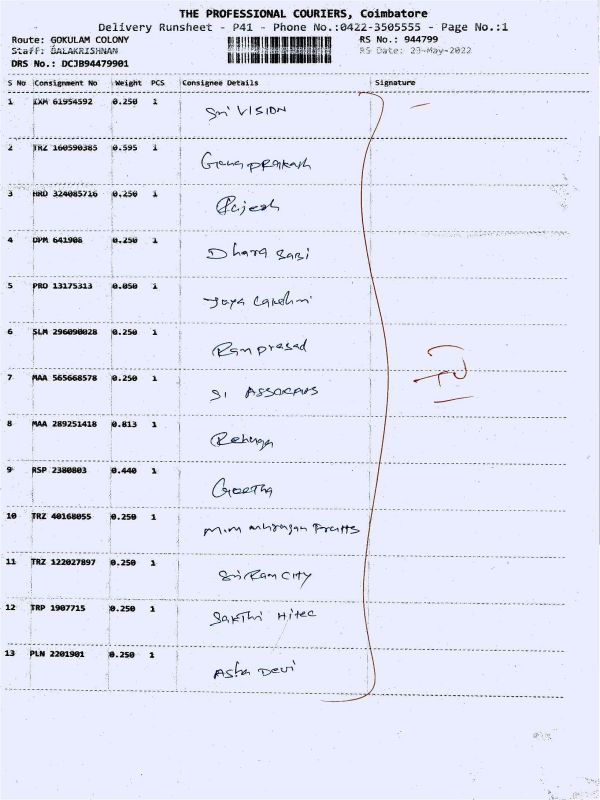 THE PROFESSIONAL COURIERS, Coimbatore
Delivery Runsheet - P41 - Phone No.:0422-3505555 - Page No.:1
Route: GOKULAM COLONY RS No.: 944799
Staff: BALAKRISHNAN RS Date: 23-May-2022
DRS No.: DCJB94479901
S No Consignment No Weight PCS Consignee Details Signature
1 IXM 61954592 0.250 1 Sri VISION
2 TRZ 160590385 0.595 1 Gnanaprakash
3 HRD 324085716 0.250 1 Rajesh
4 DPM 641906 0.250 1 Dhara Sasi
5 PRO 13175313 0.050 1 Jaya Lakshmi
6 SLM 296090028 0.250 1 Ramprasad
7 MAA 565668578 0.250 1
8 MAA 289251418 0.813 1 Renuga
9 RSP 2380803 0.440 1 Geetha
10 TRZ 40168055 0.250 1
11 TRZ 122027897 0.250 1 Sri Ram CITY
12 TRP 1907715 0.250 1 Sakthi Hitec
13 PLN 2201901 0.250 1 Asha Devi